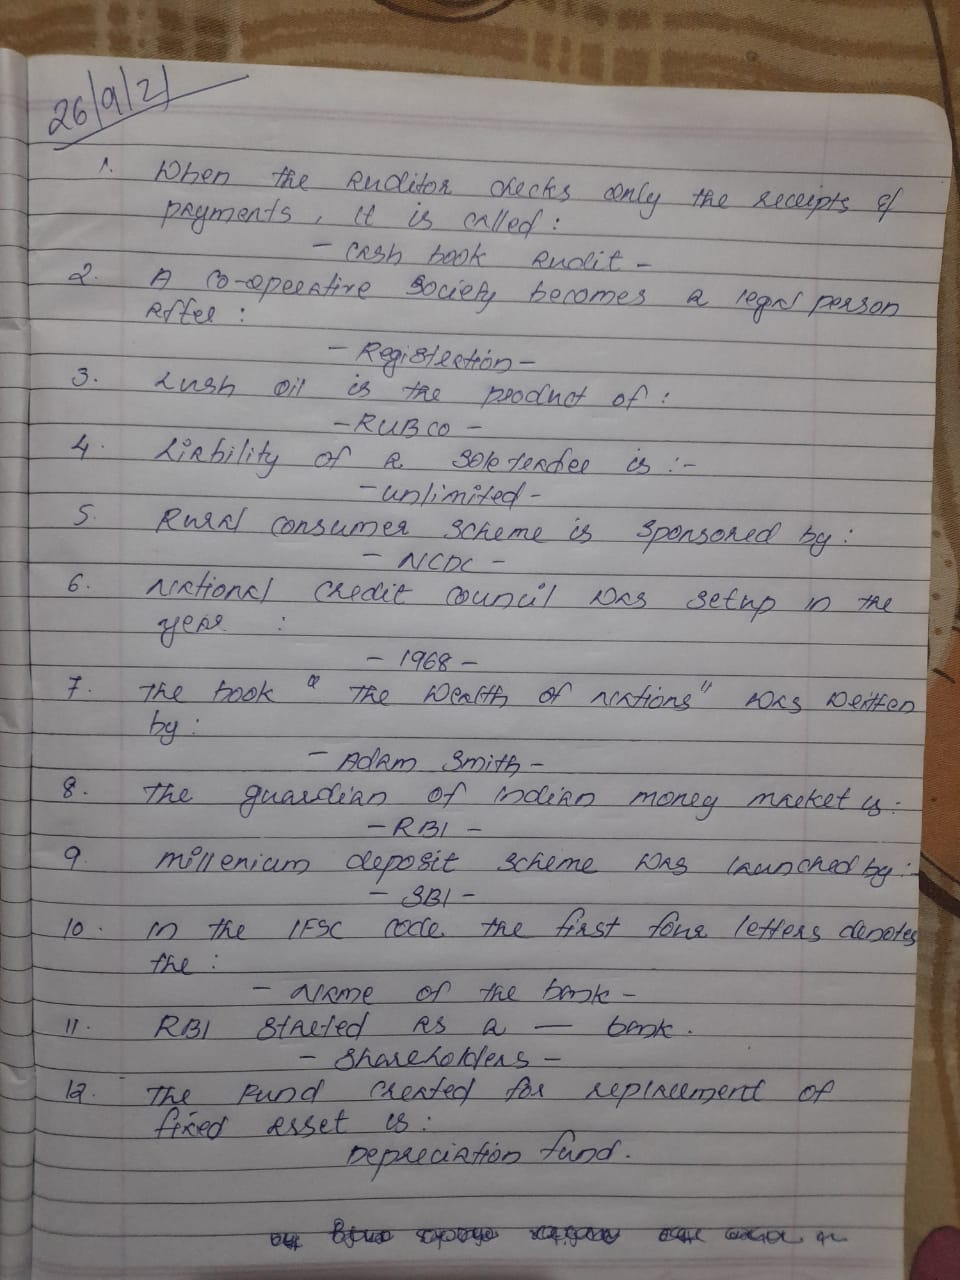 26/9/21
1. When the auditor checks only the receipts &
payments, it is called :
- Cash book audit -
2. A co-operative society becomes a legal person
after :
- Registration -
3. Lush oil is the product of :
- RUBCO -
4. Liability of a sole trader is :-
- unlimited -
5. Rural consumer scheme is sponsored by :
- NCDC -
6. National credit council was setup in the
year :
- 1968 -
7. The book "The Wealth of Nations" was written
by :
- Adam Smith -
8. The guardian of Indian money market is -
- RBI -
9. millenium deposit scheme was launched by :-
- SBI -
10. In the IFSC code the first four letters denotes
the :
- Name of the bank -
11. RBI started as a — bank.
- Shareholders -
12. The Fund created for replacement of
fixed asset is :
Depreciation fund.